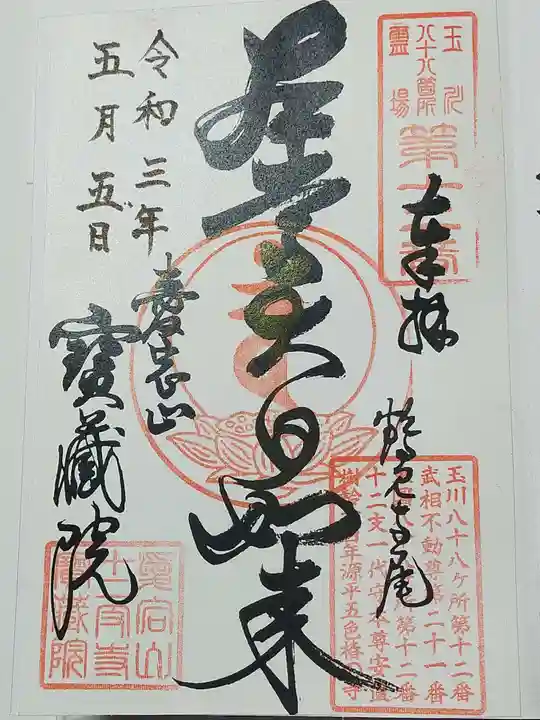 玉川
八十八箇所
靈場
第十二番
奉拝
鶴見寺尾
玉川八十八ヶ所第十二番
武相不動尊第二十一番
第十二番
十二支一代守本尊安置
樹齢 年源平五色椿の寺
大日如来
令和三年
五月五日
愛宕山
寶藏院
愛宕山
寺
寶藏院